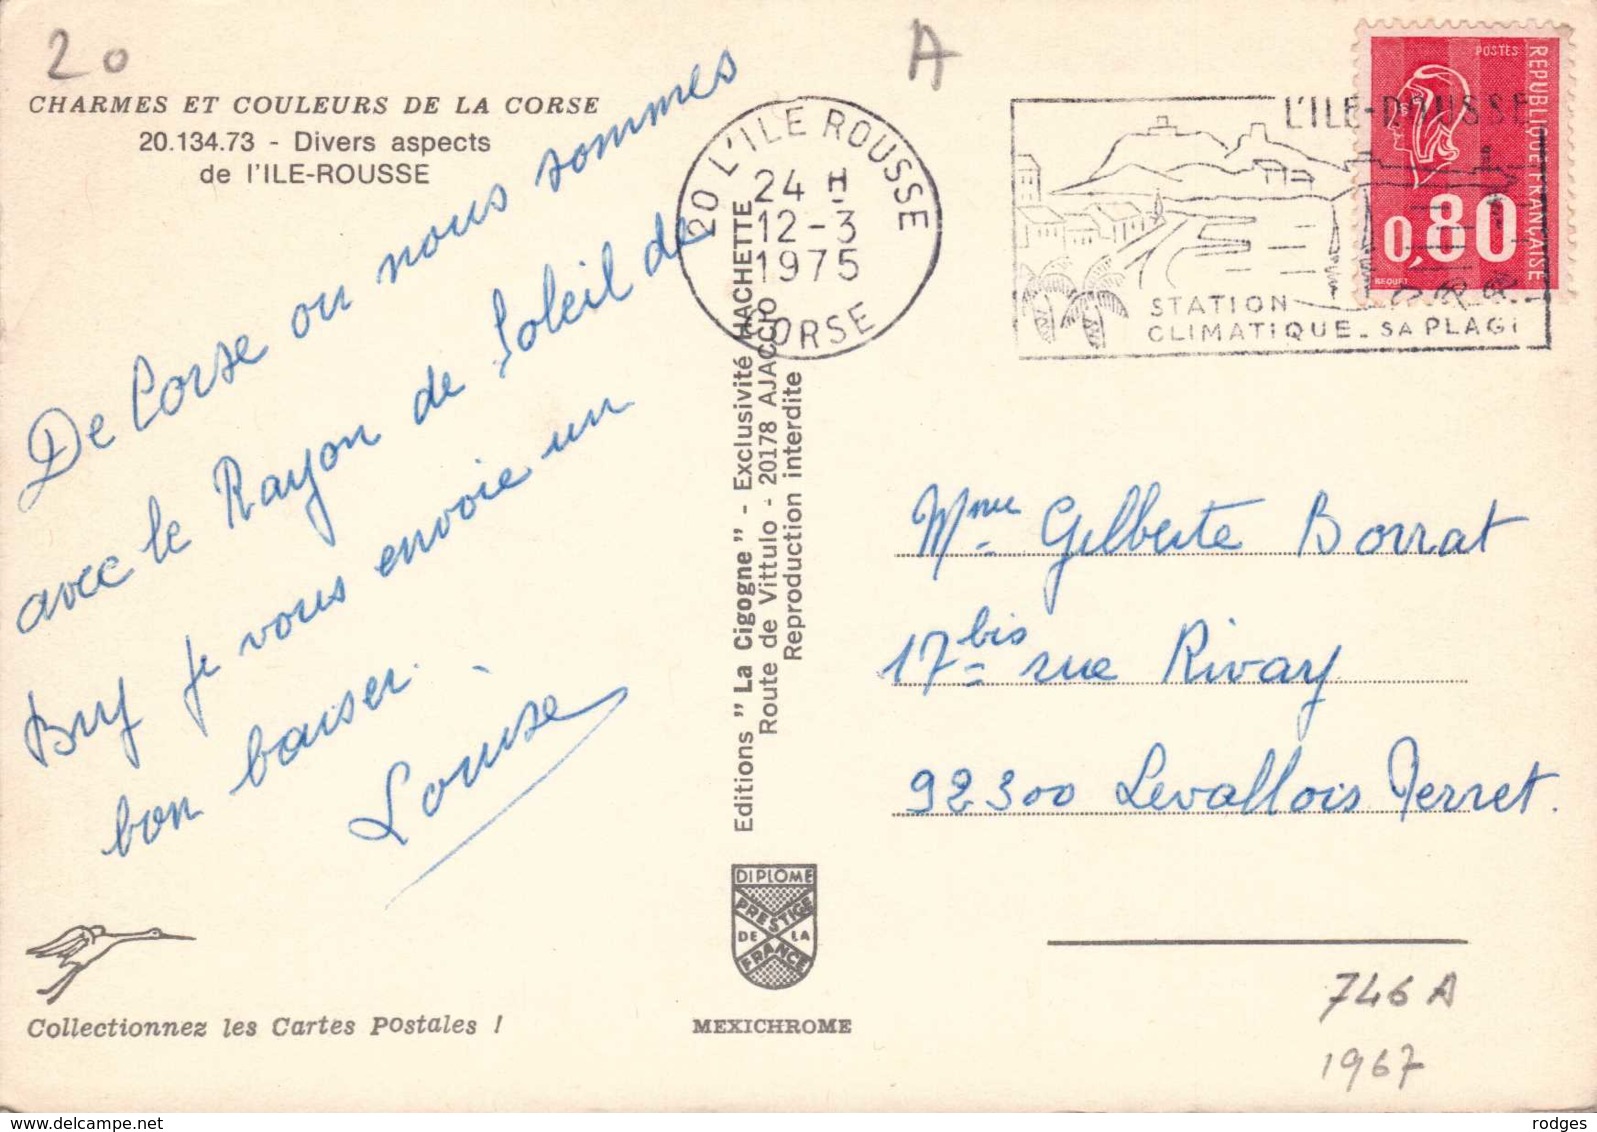 20
A
CHARMES ET COULEURS DE LA CORSE
20.134.73 - Divers aspects
de l'ILE-ROUSSE
De Corse ou nous sommes
avec le Rayon de Soleil de
je vous envoie un
bon baiser.
Louise
Collectionnez les Cartes Postales !
Editions " La Cigogne " - Exclusivité HACHETTE
Route de Vittulo - 20178 AJACCIO
Reproduction interdite
DIPLOME
PRESTIGE
DE LA
FRANCE
MEXICHROME
20 L'ILE ROUSSE
24 H
12-3
1975
CORSE
L'ILE-ROUSSE
STATION
CLIMATIQUE - SA PLAGE
POSTES
REPUBLIQUE FRANÇAISE
0,80
BEQUET
Mme Gilberte Borrat
17 bis rue Rivay
92300 Levallois Perret.
746 A
1967
www.delcampe.net
rodges